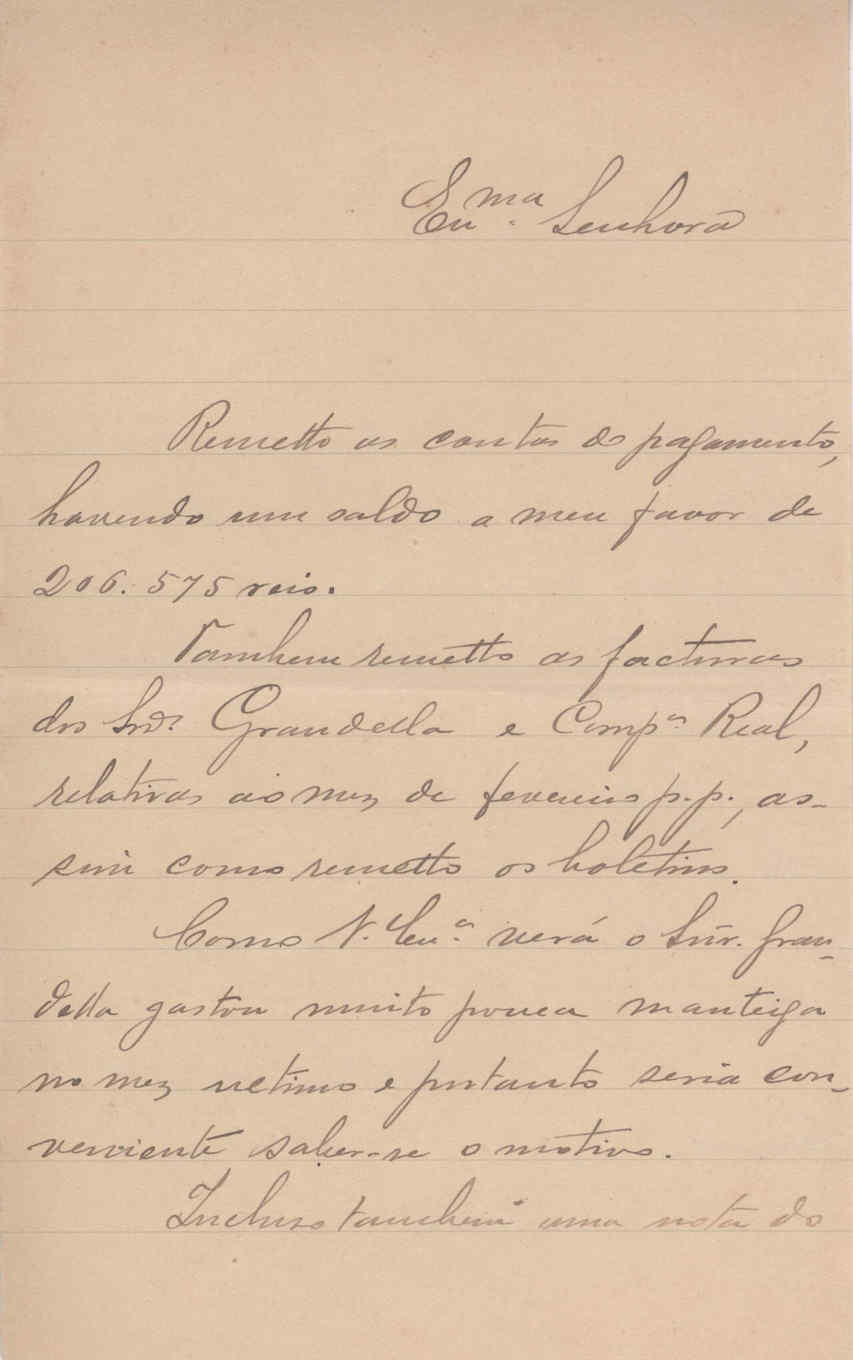 Exma. Senhora
Remetto as contas do pagamento,
havendo um saldo a meu favor de
206.575 reis.
Tambem remetto as facturas
dos Snrs. Grandella e Compa Real,
relativas ao mez de fevereiro p.p., as-
sim como remetto os boletins.
Como V. Exa. verá o Snr. Gran-
della gastou muito pouca manteiga
no mez ultimo e portanto seria con-
veniente saber-se o motivo.
Incluso tambem uma nota do